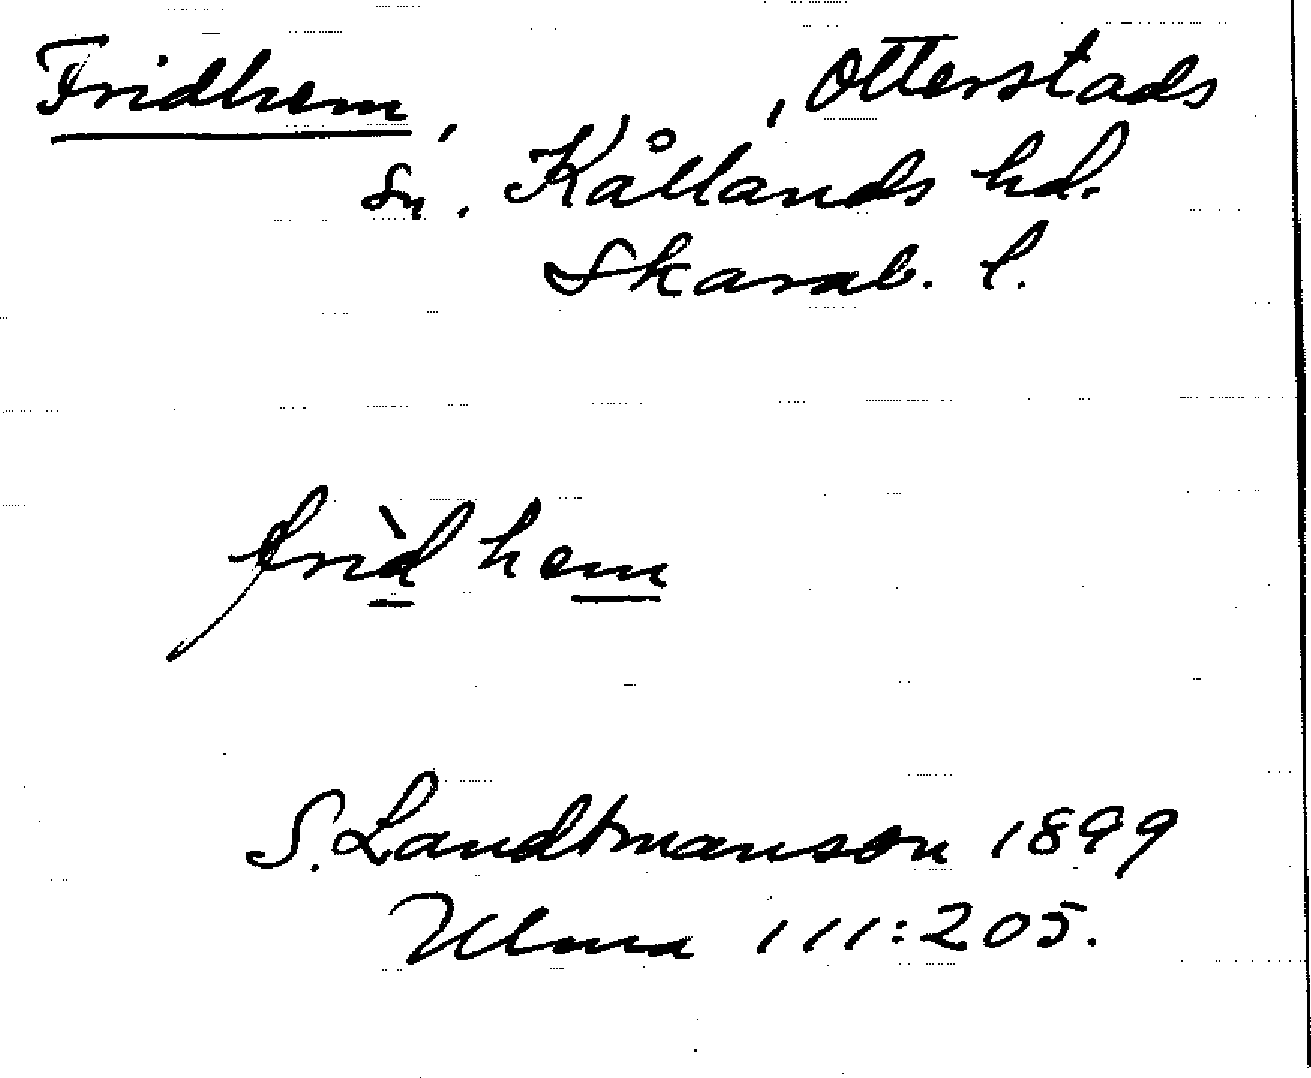 Fridhem, , Otterstads
sn. Kållands hd.
Skarab. l.
frìdhem
S. Landtmanson 1899
Ulma 111:205.